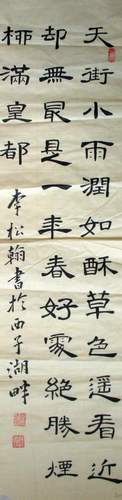 天街小雨潤如酥草色遥看近
却無最是一年春好處絶勝煙
柳滿皇都
李松翰書於西子湖畔